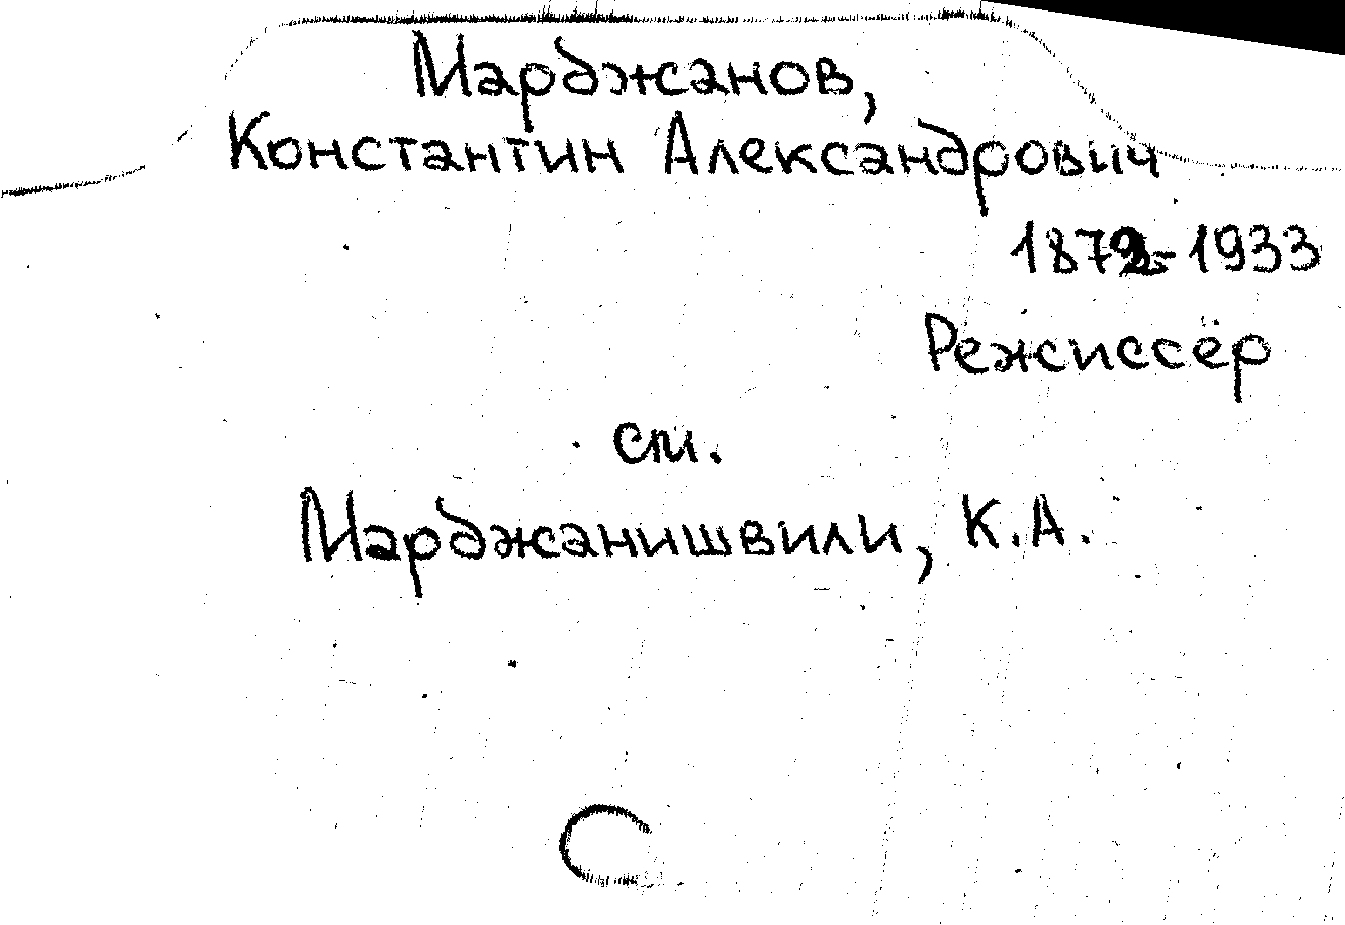 Марджанов,
Константин Александрович
1872-1933
Режиссёр
см.
Марджанишвили, К.А.